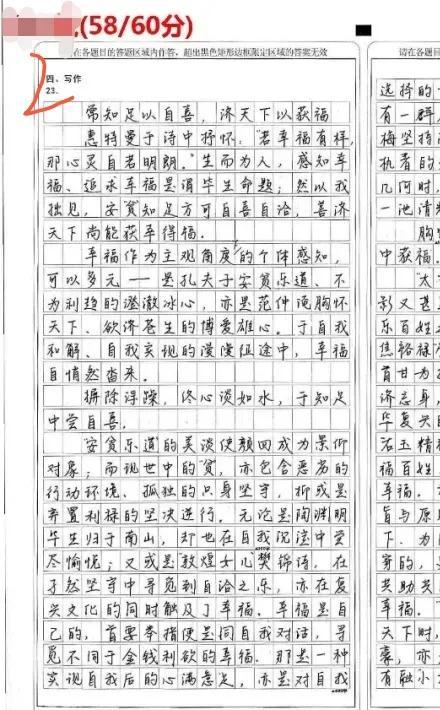 (58/60分)
请在各题目的答题区域内作答,超出黑色矩形边框限定区域的答案无效
四、写作
23.
常知足以自喜,济天下以获福
惠特曼于诗中抒怀:“若幸福有样,
那心灵自若明朗。”生而为人,感知幸
福、追求幸福是谓毕生命题;然以我
拙见,安贫知足方可自喜自洽,善济
天下尚能获幸得福。
幸福作为主观角度的个体感知,
可以多元——是孔夫子安贫乐道、不
为利趋的澄澈冰心,亦是范仲淹胸怀
天下、欲济苍生的博爱雄心。于自我
和解、自我实现的漫漫征途中,幸福
自悄然踏来。
摒除浮躁,佟心淡如水,于知足
中尝自喜。
“安贫乐道”的美谈使颜回成为景仰
对象;而现世中的“贫”,亦包含恶劣的
行动环境、孤独的只身坚守,抑或是
弃置利禄的坚决进行。无论是陶渊明
毕生归于南山,却也在自我沉淀中尝
尽愉悦;又或是敦煌女儿樊锦诗,在
孑然坚守中寻觅到自洽之乐,亦在复
兴文化的同时触及了幸福。幸福是自
己的,首要奉指便是同自我对话,寻
觅不同于金钱利欲的幸福。那是一种
实现自我后的心满意足,亦是对自我
请在各题目的
选择的一
有一群
梅坚持
执着的
几何时,
一池清
胸
中获福。
“太
影又甚
乐百姓
焦裕禄
首甘为
济志身,
华复兴
沾玉精
福百姓
幸福。
旨与原
下、为
穷的,
共助共
幸福。
天下时,
豪,亦
有融小